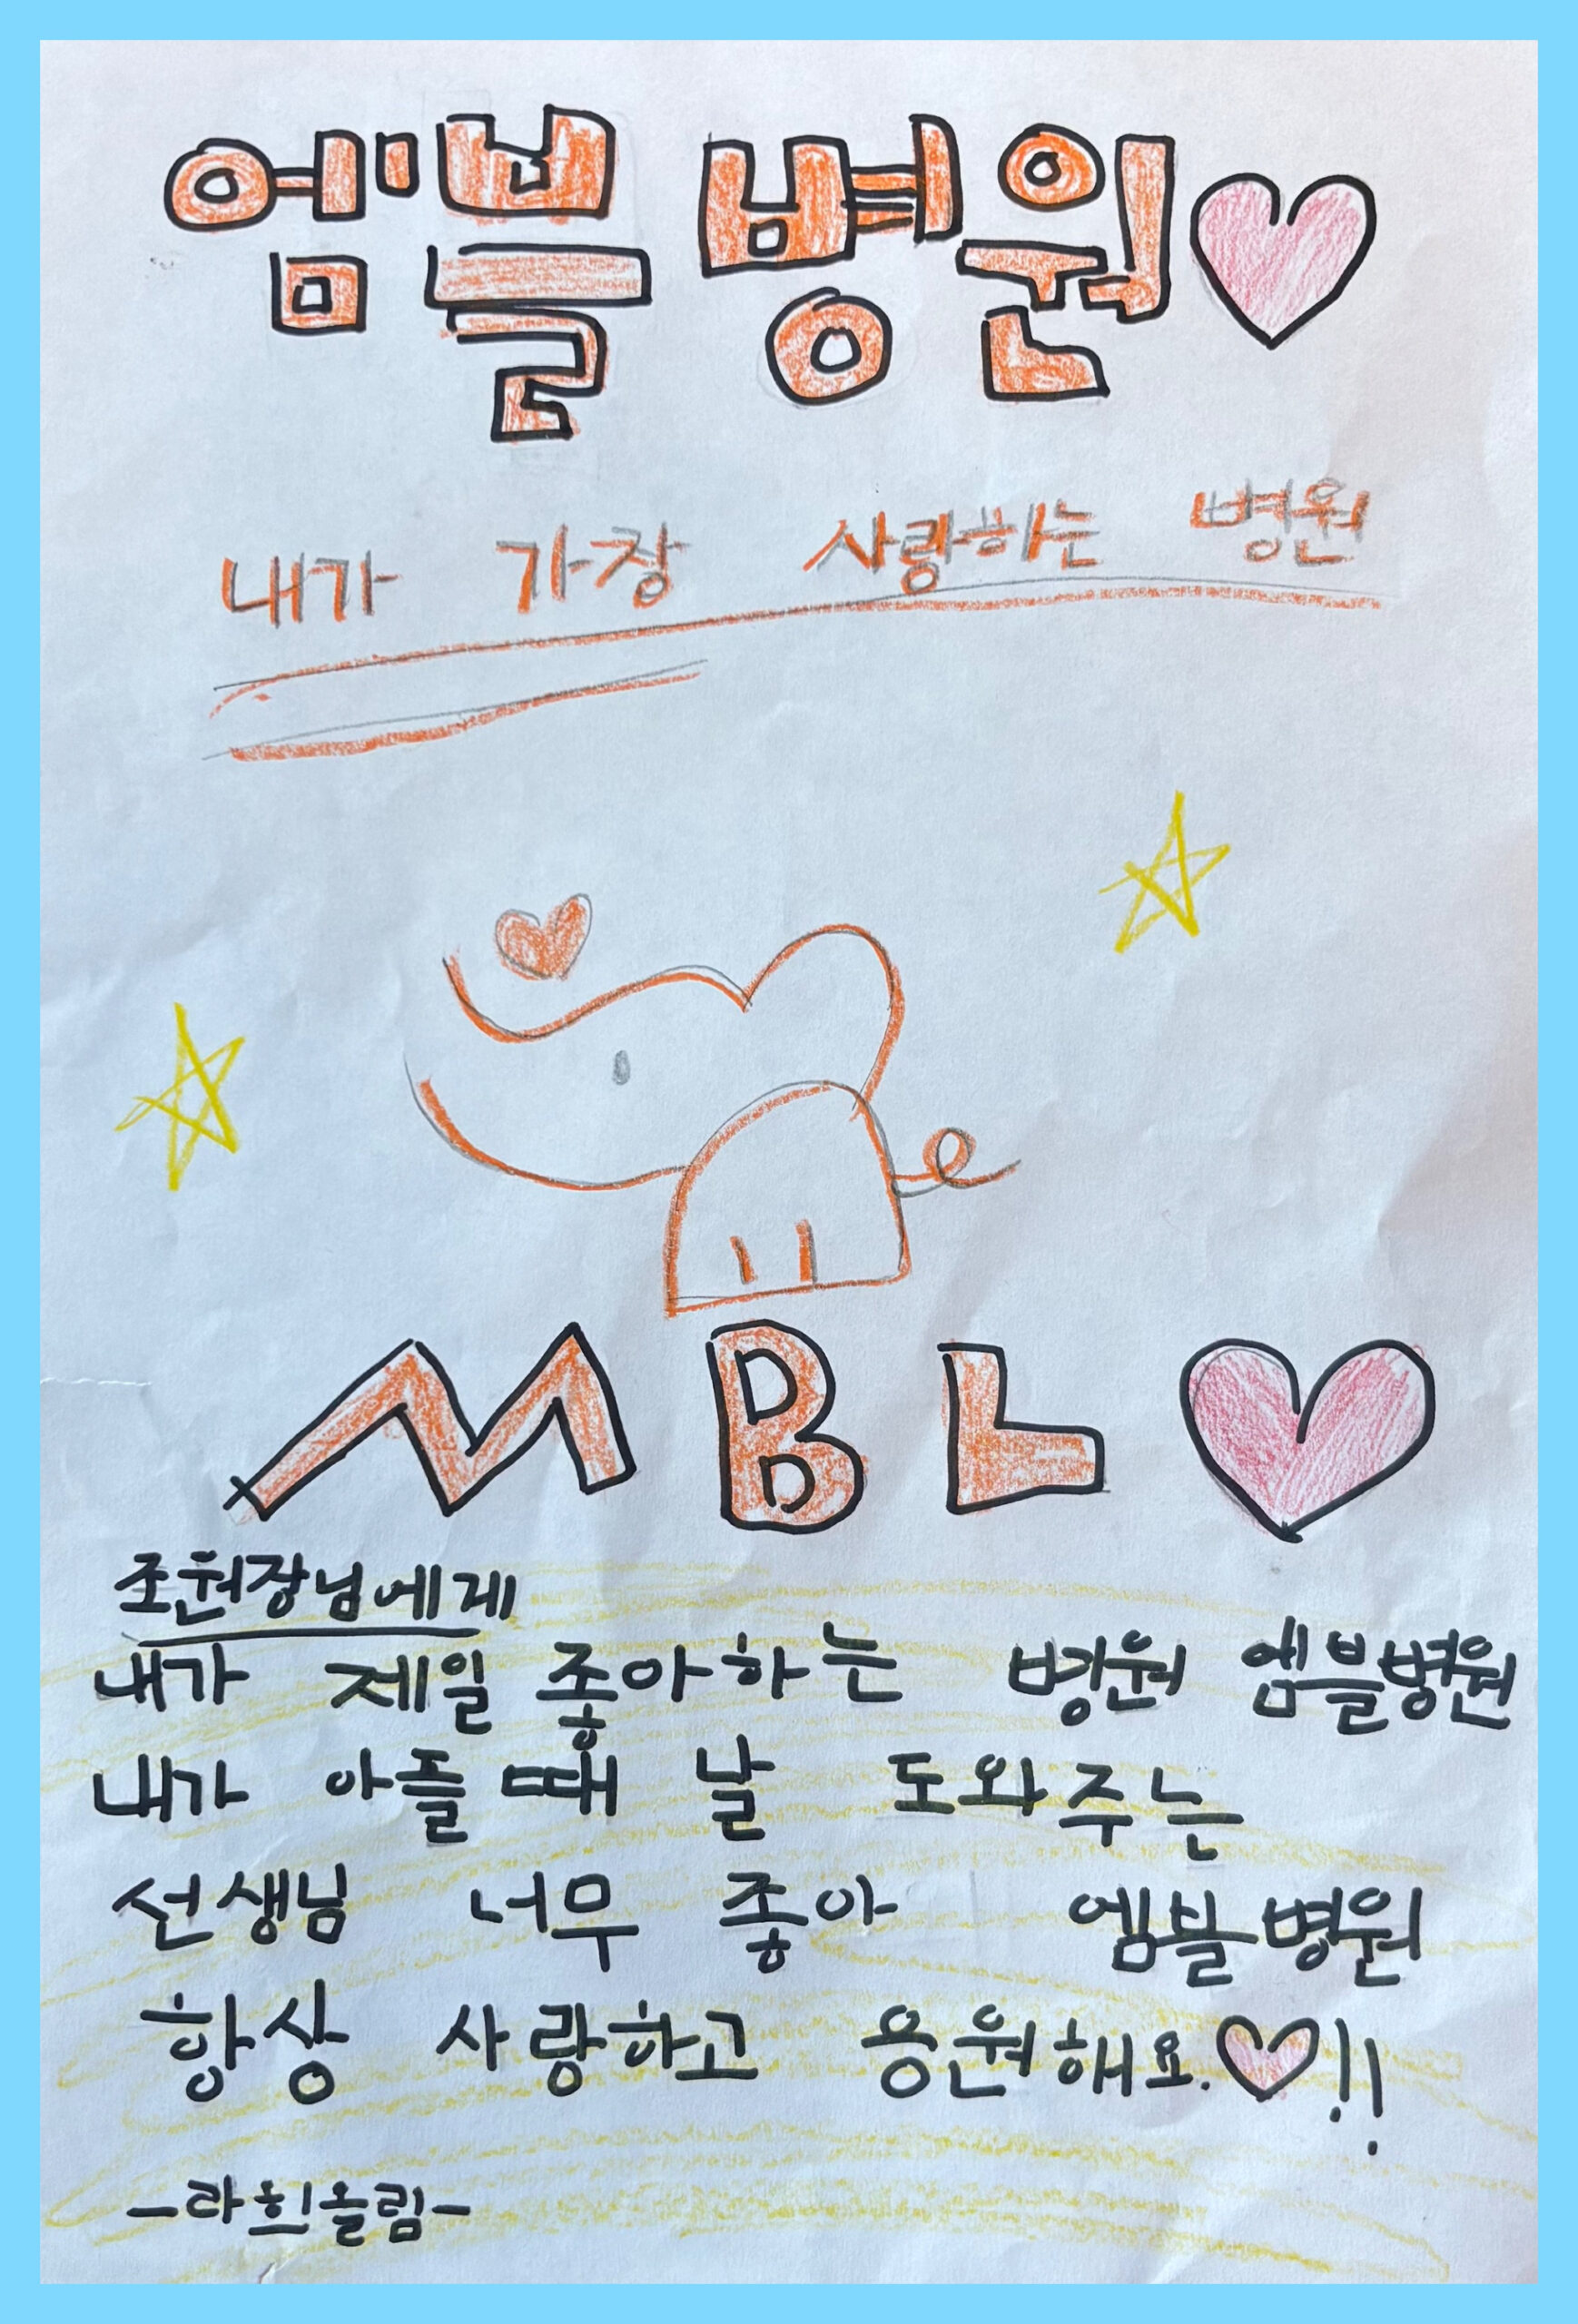 엠블 병원♡
내가 가장 사랑하는 병원
MBL♡
조원장님에게
내가 제일 좋아하는 병원 엠블병원
내가 아플때 날 도와주는
선생님 너무 좋아 엠블병원
항상 사랑하고 응원해요.♡!!
-라희올림-